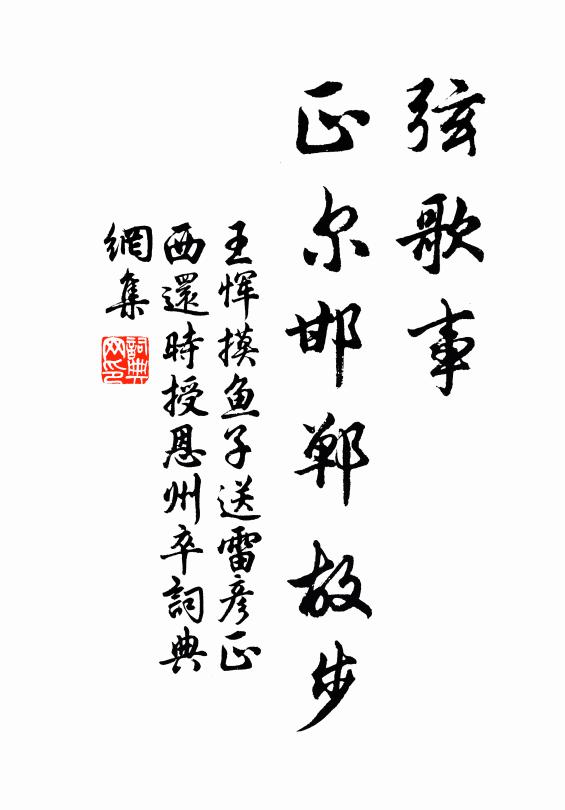 弦歌事
正尔邯郸故步
王恽摸鱼子送雷彦正
西還時授恩州卒詞典
網集
詞典网印